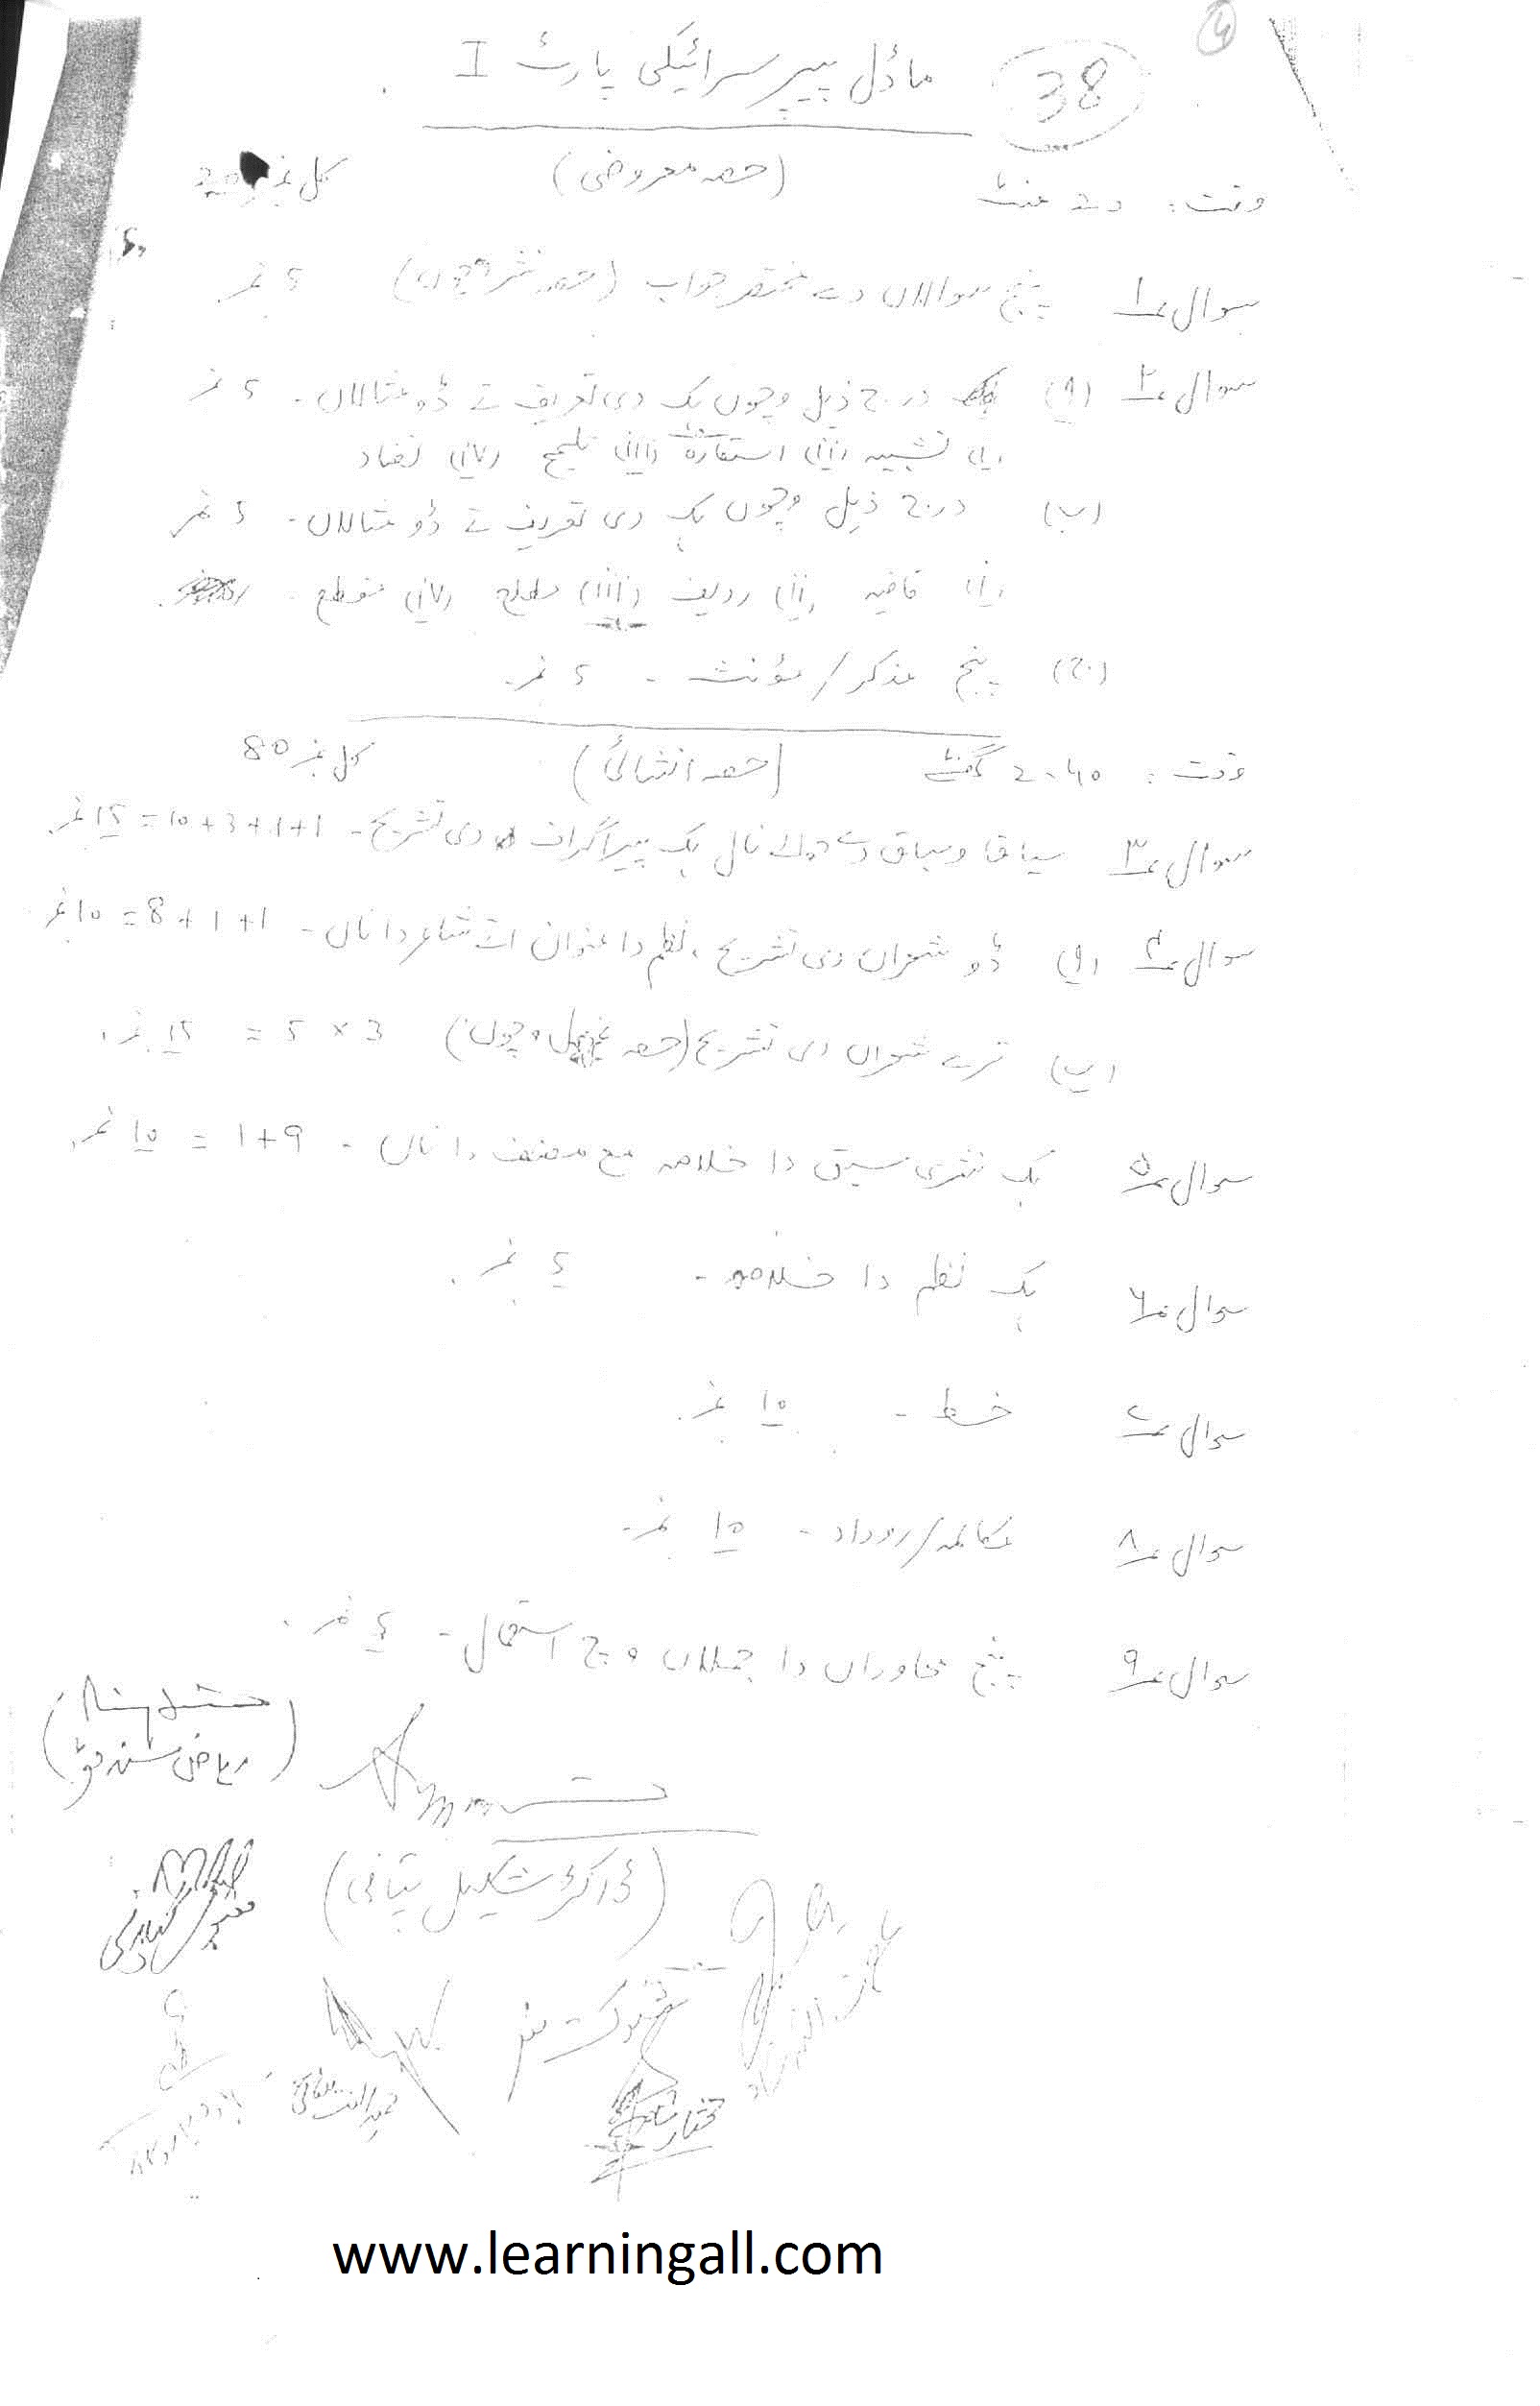 38
ماڈل پیپر سرائیکی پارٹ I
(حصہ معروضی)
وقت: 20 منٹ
کل نمبر 20
سوال ۱ پنج سوالاں دے مختصر جواب (حصہ نثر وچوں) 5 نمبر
سوال ۲ (و) درج ذیل وچوں ہک دی تعریف تے ڈو مثالاں۔ 5 نمبر
(i) تشبیہ (ii) استعارہ (iii) تلمیح (iv) تضاد
(ب) درج ذیل وچوں ہک دی تعریف تے ڈو مثالاں۔ 5 نمبر
(i) قافیہ (ii) ردیف (iii) مطلع (iv) مقطع۔
(ج) پنج مذکر/مؤنث۔ 5 نمبر
وقت: 2.40 گھنٹے (حصہ انشائی) کل نمبر 80
سوال ۳ سیاق و سباق دے حوالے نال ہک پیراگراف دی تشریح۔ 1+1+3+10=15 نمبر
سوال ۴ (و) ڈو شعراں دی تشریح، نظم دا عنوان اتے شاعر دا ناں۔ 1+1+8=10 نمبر
(ب) ترے شعراں دی تشریح (حصہ غزل وچوں) 3 × 5 = 15 نمبر
سوال ۵ ہک نثری سبق دا خلاصہ مع مصنف دا ناں۔ 1+9 = 10 نمبر
سوال ۶ ہک نظم دا خلاصہ۔ 5 نمبر
سوال ۷ خط۔ 10 نمبر
سوال ۸ مکالمہ/روداد۔ 10 نمبر
سوال ۹ پنج محاوراں دا جملاں وچ استعمال۔ 5 نمبر
(ریاض سندھڑ)
(ڈاکٹر شکیل پتافی)
شوکت
مختار
www.learningall.com